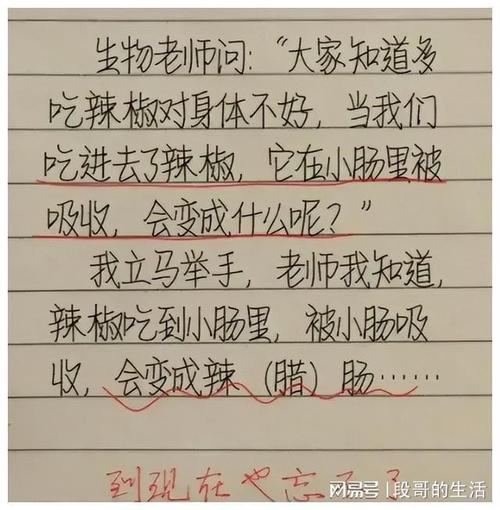 生物老师问:“大家知道多
吃辣椒对身体不好,当我们
吃进去了辣椒,它在小肠里被
吸收,会变成什么呢?”
我立马举手,老师我知道,
辣椒吃到小肠里,被小肠吸
收,会变成辣(腊)肠……
到现在也忘不了
网易号 | 段哥的生活